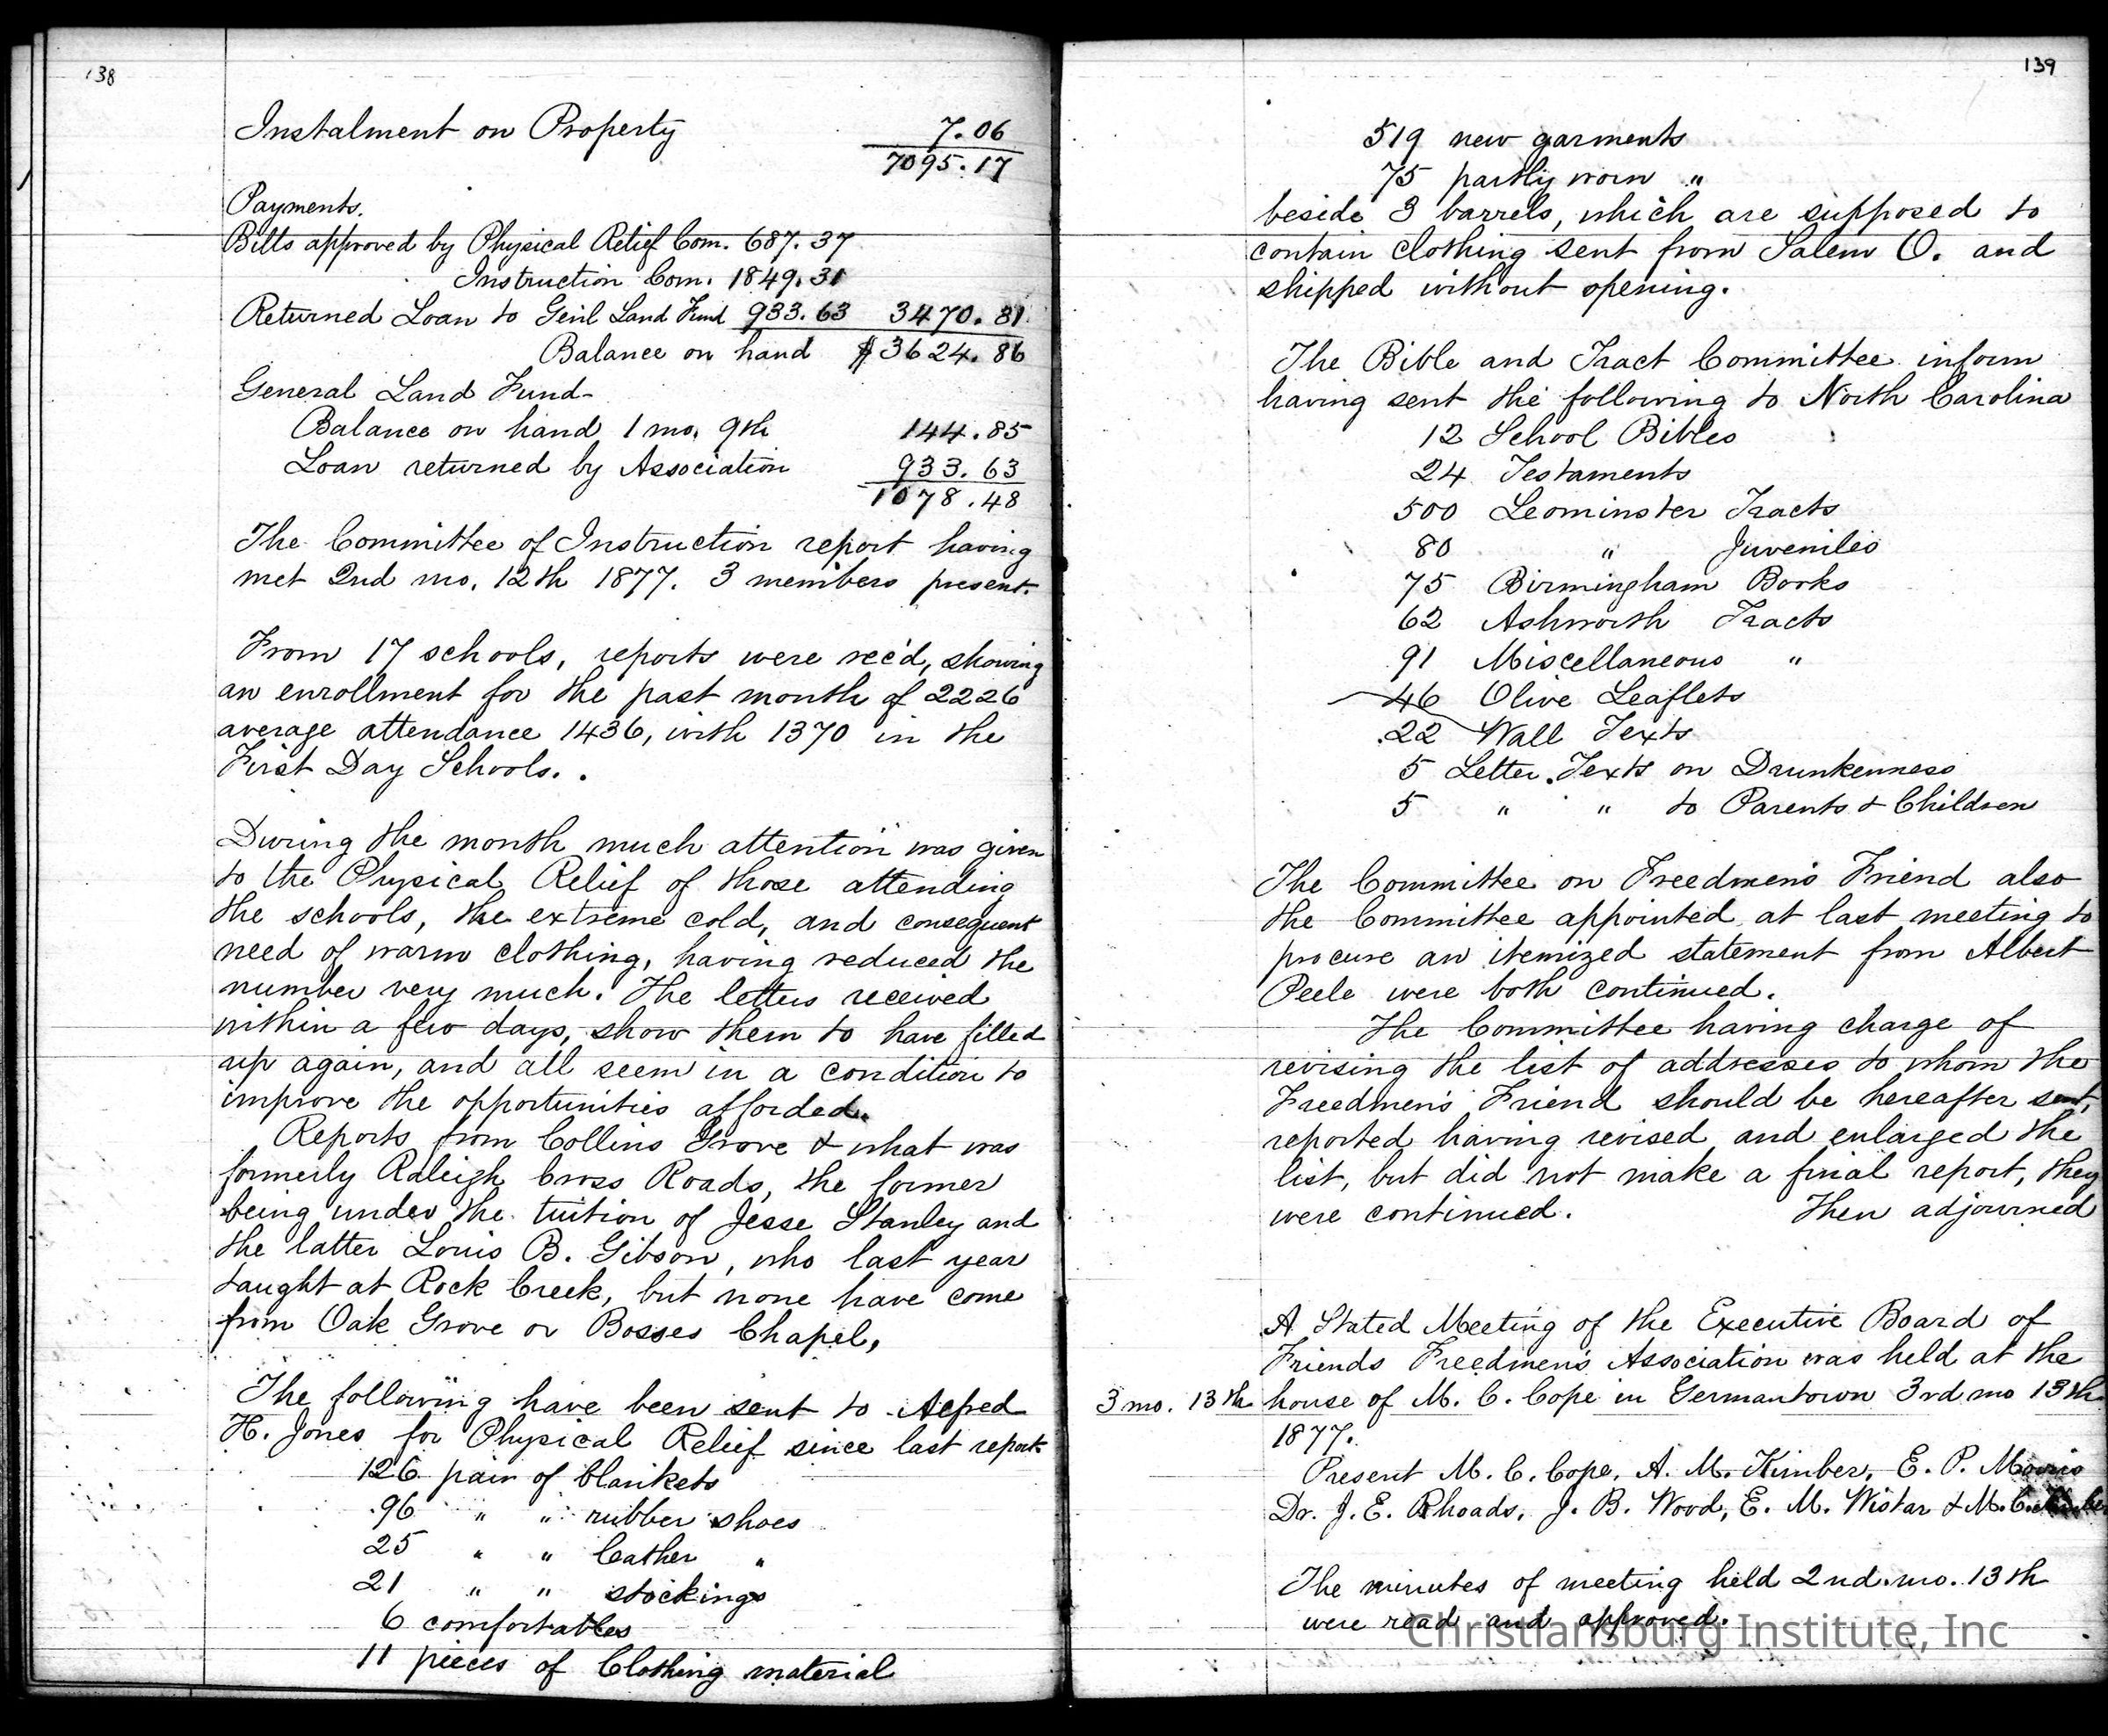 138
Instalment on Property 7.06
7095.17
Payments.
Bills approved by Physical Relief Com. 687.37
Instruction Com. 1849.31
Returned Loan to Genl Land Fund 933.63 3470.31
Balance on hand $3624.86
General Land Fund-
Balance on hand 1 mo. 9th 144.85
Loan returned by Association 933.63
1078.48
The Committee of Instruction report having
met 2nd mo. 12th 1877. 3 members present.
From 17 schools, reports were rec'd, showing
an enrollment for the past month of 2226
average attendance 1436, with 1370 in the
First Day Schools.
During the month much attention was given
to the Physical Relief of those attending
the schools, the extreme cold, and consequent
need of warm clothing, having reduced the
number very much. The letters received
within a few days, show them to have filled
up again, and all seem in a condition to
improve the opportunities afforded.
Reports from Collins Grove & what was
formerly Raleigh Cross Roads, the former
being under the tuition of Jesse Stanley and
the latter Louis B. Gibson, who last year
taught at Rock Creek, but none have come
from Oak Grove or Bosses Chapel,
The following have been sent to Alfred
H. Jones for Physical Relief since last report
126 pair of blankets
96 " " rubber shoes
25 " " leather "
21 " " stockings
6 comfortables
11 pieces of Clothing material
139
519 new garments
75 partly worn "
beside 3 barrels, which are supposed to
contain clothing sent from Salem O. and
shipped without opening.
The Bible and Tract Committee inform
having sent the following to North Carolina
12 School Bibles
24 Testaments
500 Leominster Tracts
80 " Juveniles
75 Birmingham Books
62 Ashworth Tracts
91 Miscellaneous "
46 Olive Leaflets
22 Wall Texts
5 Letter Texts on Drunkenness
5 " " to Parents & Children
The Committee on Freedmen's Friend also
the Committee appointed at last meeting to
procure an itemized statement from Albert
Peele were both continued.
The Committee having charge of
revising the list of addresses to whom the
Freedmen's Friend should be hereafter sent,
reported having revised and enlarged the
list, but did not make a final report, they
were continued. Then adjourned
A Stated Meeting of the Executive Board of
Friends Freedmen's Association was held at the
3 mo. 13th house of M. C. Cope in Germantown 3rd mo 13th
1877.
Present M. C. Cope, A. M. Kimber, E. P. Morris
Dr. J. E. Rhoads, J. B. Wood, E. M. Wistar & M. C.
The minutes of meeting held 2nd. mo. 13th
were read and approved.
Christiansburg Institute, Inc